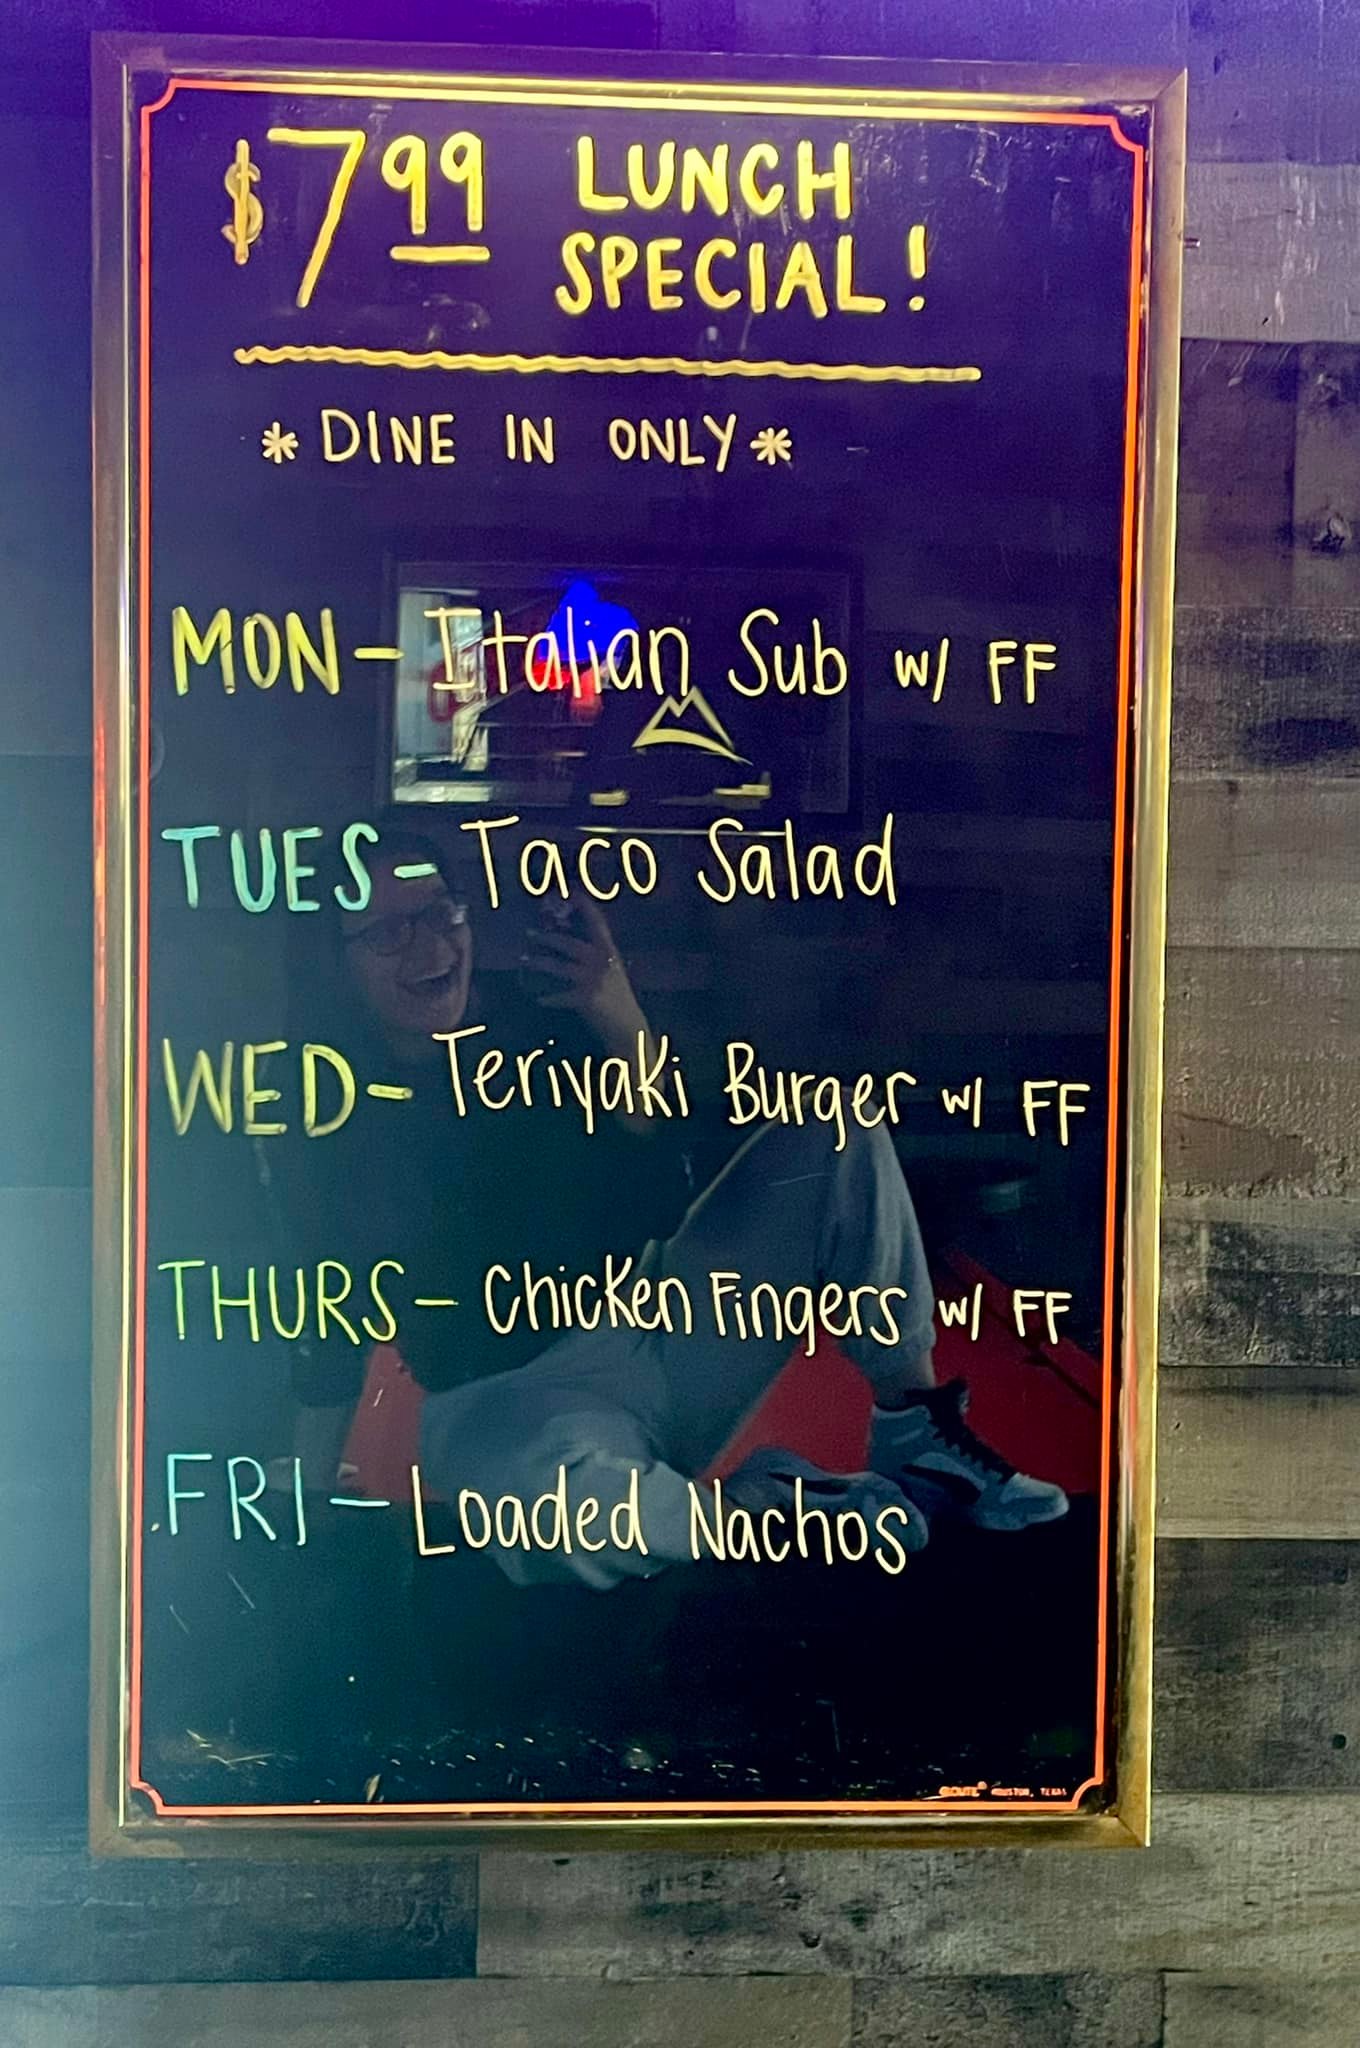 $7.99 LUNCH
SPECIAL!
*DINE IN ONLY*
MON- Italian Sub w/ FF
TUES- Taco Salad
WED- Teriyaki Burger w/ FF
THURS- Chicken Fingers w/ FF
FRI- Loaded Nachos
HOUSTON, TEXAS